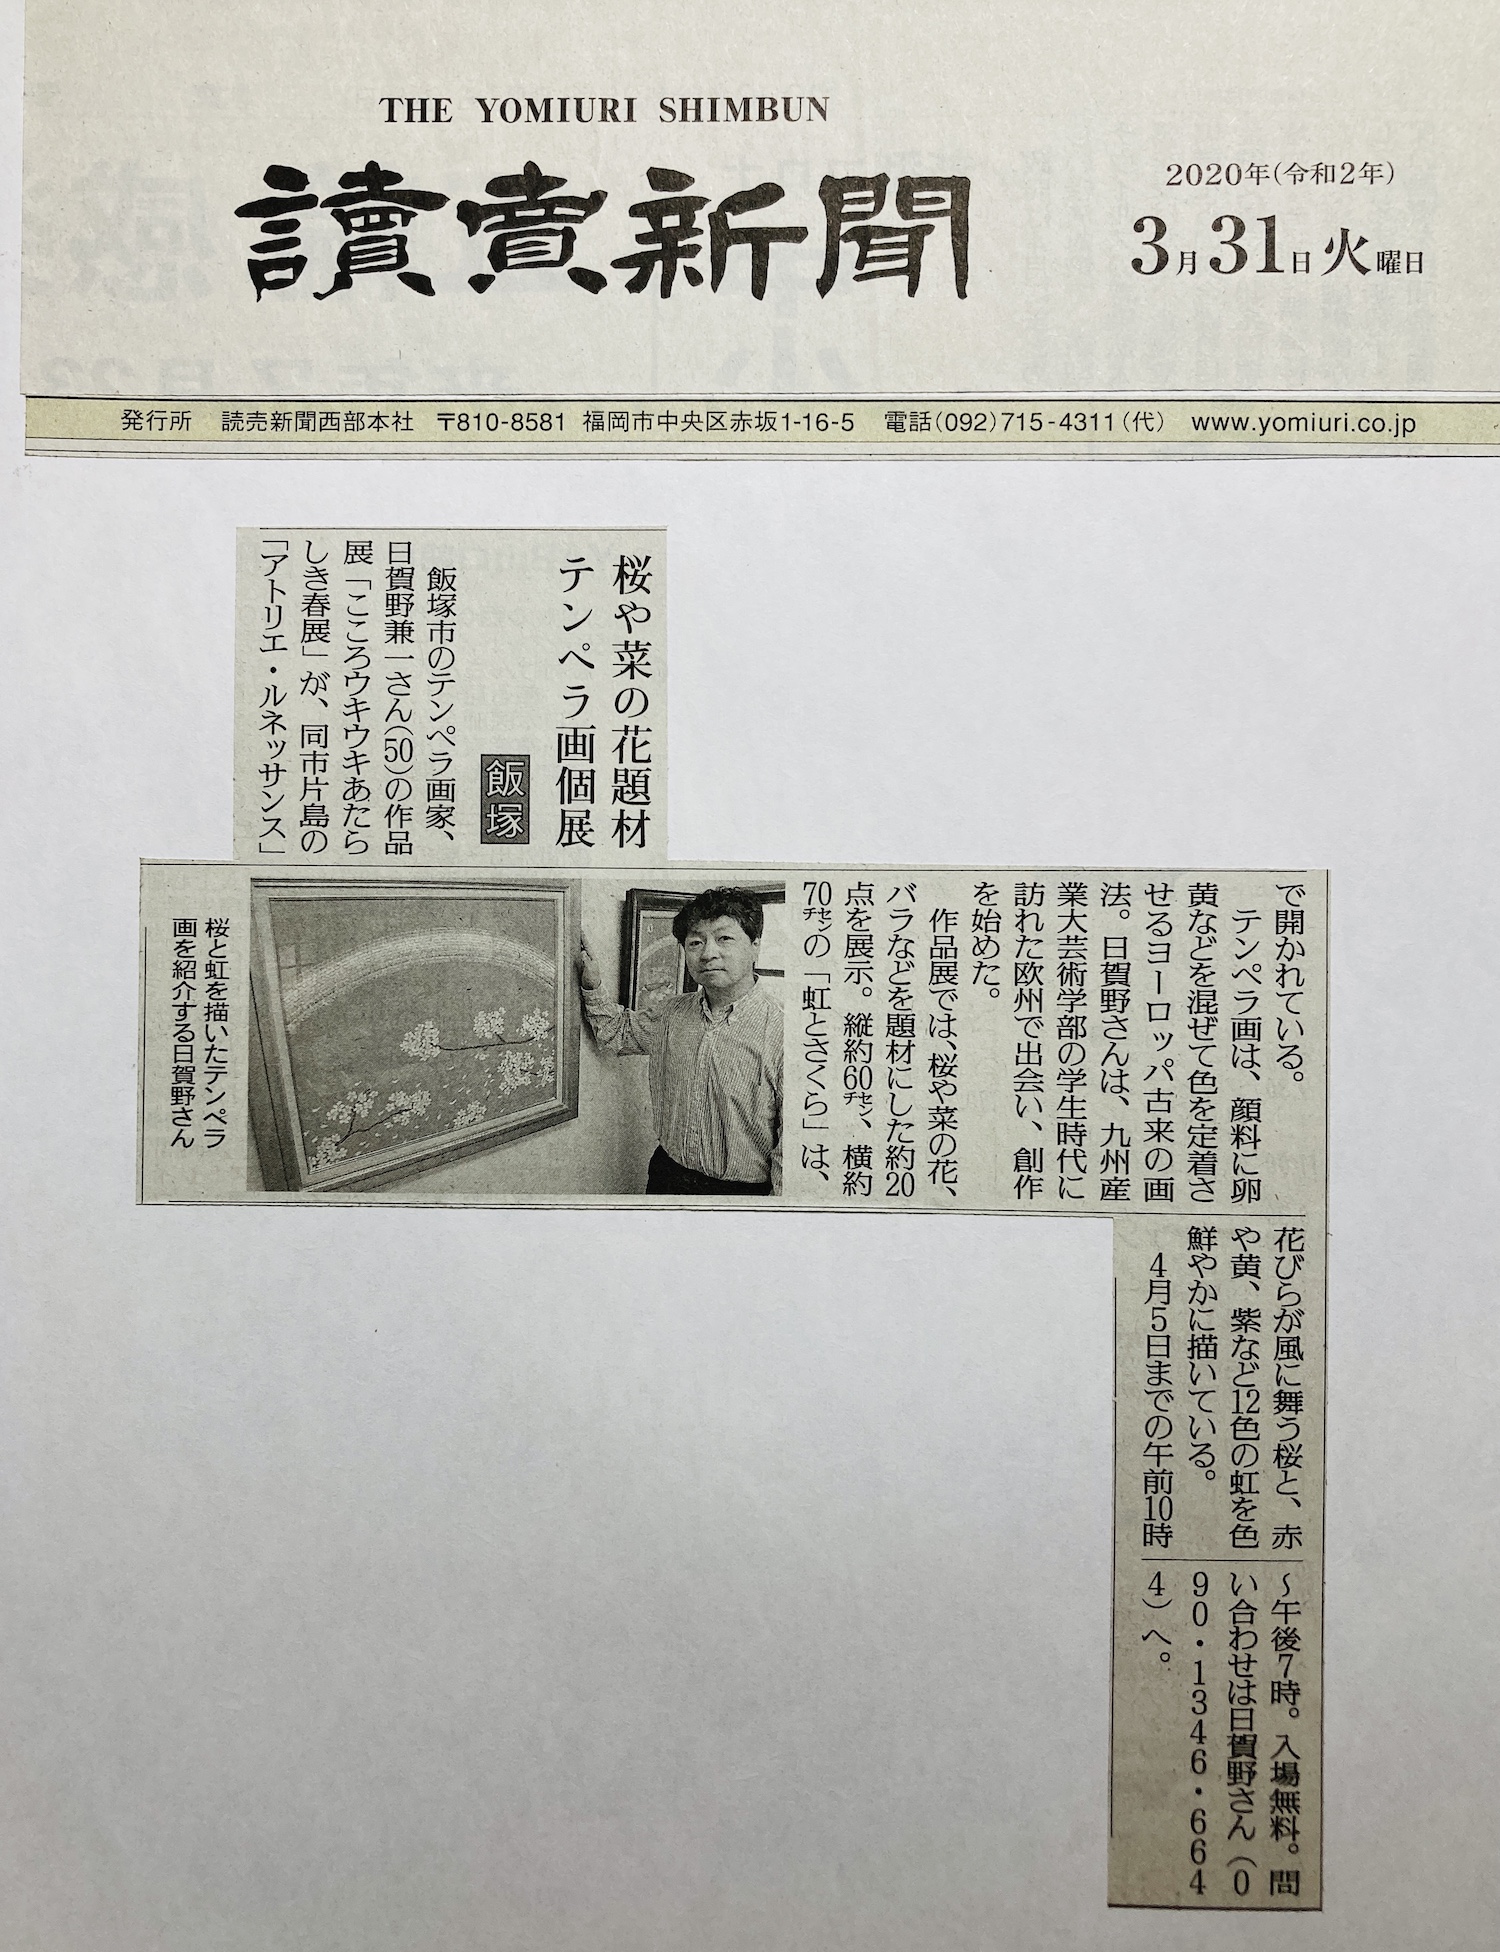 THE YOMIURI SHIMBUN
讀賣新聞
2020年(令和2年)
3月31日火曜日
発行所 読売新聞西部本社 〒810-8581 福岡市中央区赤坂1-16-5 電話(092)715-4311(代) www.yomiuri.co.jp
桜や菜の花題材
テンペラ画個展
飯塚
飯塚市のテンペラ画家、
日賀野兼一さん(50)の作品
展「こころウキウキあたら
しき春展」が、同市片島の
「アトリエ・ルネッサンス」
で開かれている。
テンペラ画は、顔料に卵
黄などを混ぜて色を定着さ
せるヨーロッパ古来の画
法。日賀野さんは、九州産
業大芸術学部の学生時代に
訪れた欧州で出会い、創作
を始めた。
作品展では、桜や菜の花、
バラなどを題材にした約20
点を展示。縦約60㌢、横約
70㌢の「虹とさくら」は、
桜と虹を描いたテンペラ
画を紹介する日賀野さん
花びらが風に舞う桜と、赤
や黄、紫など12色の虹を色
鮮やかに描いている。
4月5日までの午前10時
~午後7時。入場無料。問
い合わせは日賀野さん(0
90・1346・664
4)へ。